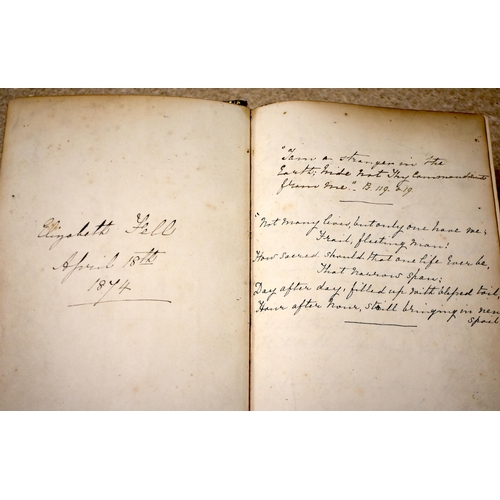 Elizabeth Fell
April 18th
1874
"I am a stranger in the
Earth; hide not Thy Commandments
from me". P. 119. v 19.
"Not many lives, but only one have we;
Frail, fleeting man:
How sacred should that one life Ever be,
That narrow span;
Day after day, filled up with blessed toil,
Hour after hour, still bringing in new
spoil